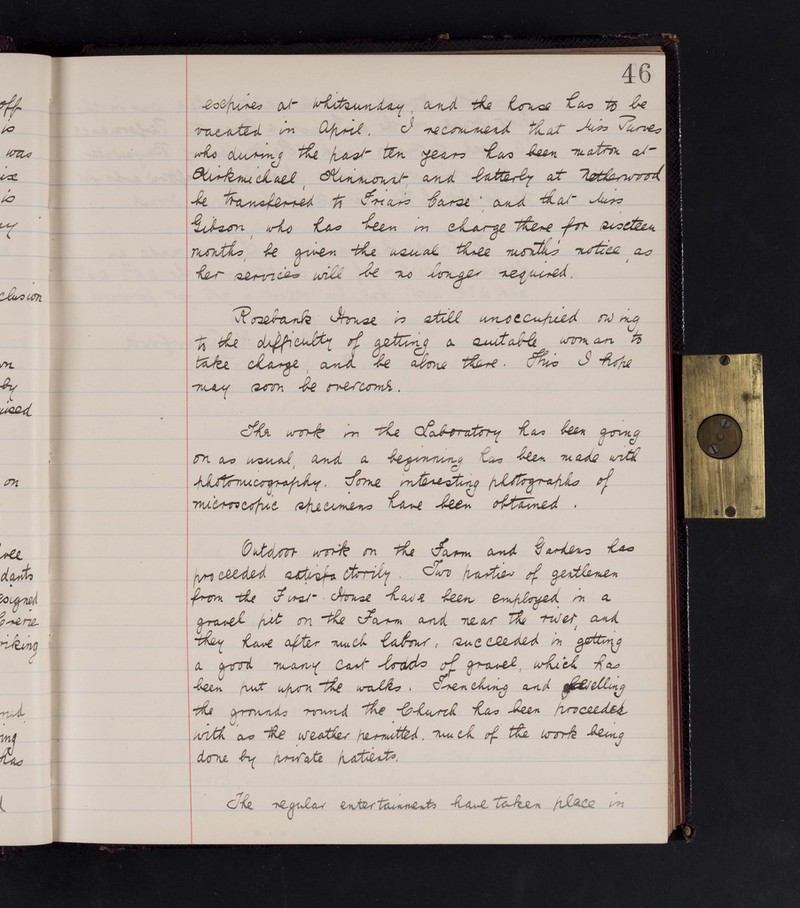 46
off
is
was
is
clusion
on
by
on
dants
signed
riking
ing
has
expires at Whitsunday, and the house has to be
vacated in April. I recommend that Miss Purves
who during the past ten years has been matron at
Kirkmichael, Kinmount, and latterly at Netherwood
be transferred to Friars Carse; and that Miss
Gibson, who has been in charge there for sixteen
months, be given the usual three month's notice, as
her services will be no longer required.
Rosebank House is still unoccupied owing
to the difficulty of getting a suitable woman to
take charge, and be alone there. This I hope
may soon be overcome.
The work in the Laboratory has been going
on as usual, and a beginning has been made with
photomicography. Some interesting photographs of
microscopic specimens have been obtained.
Outdoor work on the Farm and Gardens has
proceeded satisfactorily. Two parties of gentlemen
from the First House have been employed in a
gravel pit on the Farm and near the river, and
they have after much labour, succeeded in getting
a good many cart loads of gravel, which has
been put upon the walks. Trenching and levelling
the grounds round the Church has been proceeded
with as the weather permitted, much of the work being
done by private patients.
The regular entertainments have taken place in